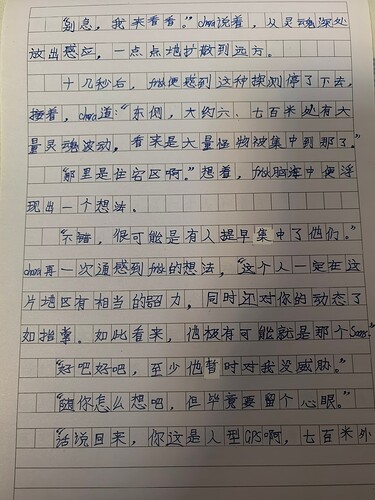 "别急，我来看看。"chara说着，从灵魂深处
放出感应，一点点地扩散到远方。
十几秒后，frisk便感到这种探测停了下去，
接着，chara道："东侧，大约六、七百米处有大
量灵魂波动，看来是大量怪物被集中到那了。"
"那里是住宅区啊。"想着，frisk脑海中便浮
现出一个想法。
"不错，很可能是有人提早集中了他们。"
chara再一次通感到frisk的想法，"这个人一定在这
片墙区有相当的能力，同时还对你的动态了
如指掌。如此看来，他极有可能就是那个Sans。"
"好吧好吧，至少他暂时对我没威胁。"
"随你怎么想吧，但毕竟要留个心眼。"
"话说回来，你这是人型GPS啊，七百米外